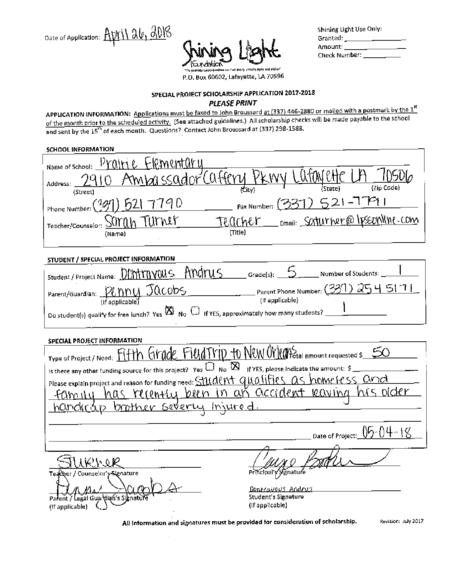 Date of Application: April 26, 2018
Shining Light Use Only:
Granted:
Amount:
Check Number:
Shining Light
Foundation
P.O. Box 60602, Lafayette, LA 70596
SPECIAL PROJECT SCHOLARSHIP APPLICATION 2017-2018
PLEASE PRINT
APPLICATION INFORMATION: Applications must be faxed to John Broussard at (337) 446-2880 or mailed with a postmark by the 1st
of the month prior to the scheduled activity. (See attached guidelines.) All scholarship checks will be made payable to the school
and sent by the 15th of each month. Questions? Contact John Broussard at (337) 298-1588.
SCHOOL INFORMATION
Name of School: Prairie Elementary
Address: 2910 Ambassador Caffery Pkwy Lafayette LA 70506
(Street) (City) (State) (Zip Code)
Phone Number: (337) 521 7790 Fax Number: (337) 521-7791
Teacher/Counselor: Sarah Turner Teacher Email: saturner@lpssonline.com
(Name) (Title)
STUDENT / SPECIAL PROJECT INFORMATION
Student / Project Name: Dontravous Andrus Grade(s): 5 Number of Students: 1
Parent/Guardian: Penny Jacobs Parent Phone Number: (337) 254 5171
(If applicable) (If applicable)
Do student(s) qualify for free lunch? Yes ☒ No ☐ If YES, approximately how many students? 1
SPECIAL PROJECT INFORMATION
Type of Project / Need: Fifth Grade Field Trip to New Orleans Total amount requested $ 50
Is there any other funding source for this project? Yes ☐ No ☒ If YES, please indicate the amount: $
Please explain project and reason for funding need: Student qualifies as homeless and
family has recently been in an accident leaving his older
handicap brother severly injured.
Date of Project: 05-04-18
STurner
Teacher / Counselor's Signature Principal's Signature
Penny Jacobs Dontravous Andrus
Parent / Legal Guardian's Signature Student's Signature
(If applicable) (If applicable)
All information and signatures must be provided for consideration of scholarship. Revision: July 2017